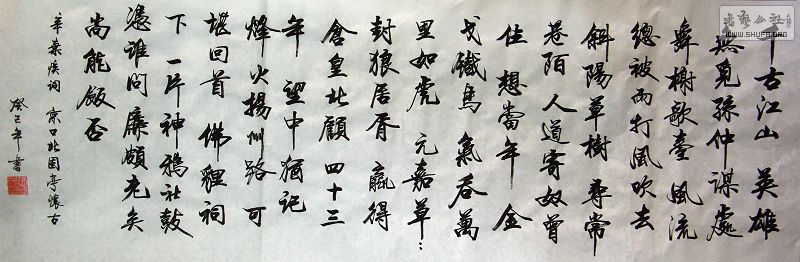 書藝公社
千古江山 英雄
無覓孫仲謀處
舞榭歌臺風流
總被雨打風吹去
斜陽草樹 尋常
巷陌 人道寄奴曾
住 想當年 金
戈鐵馬 氣吞萬
里如虎 元嘉草:
封狼居胥 贏得
倉皇北顧 四十三
年 望中猶記
烽火揚州路 可
堪回首 佛貍祠
下 一片神鴉社鼓
憑誰問廉頗老矣
尚能飯否
辛棄疾詞 京口北固亭懷古
癸巳年書